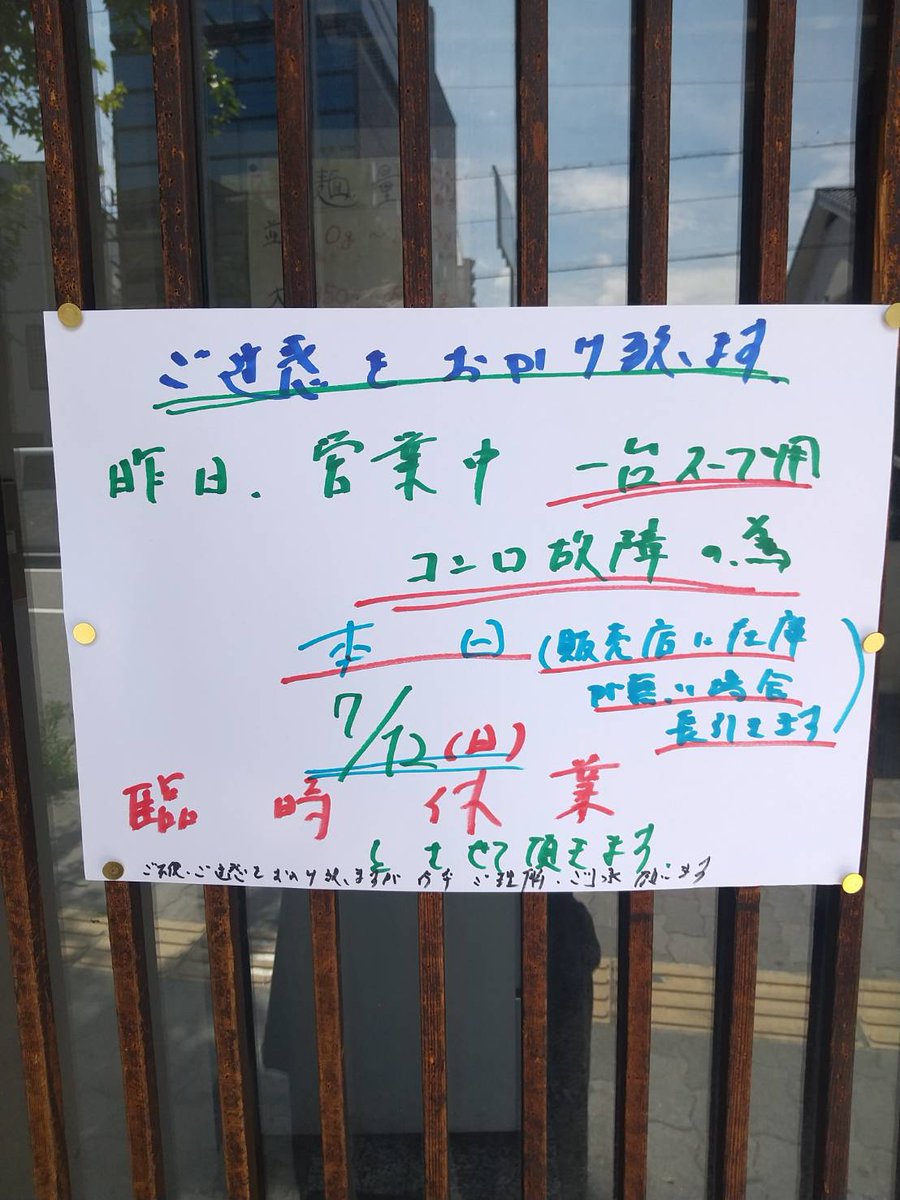 麺量
ご迷惑をおかけ致します
昨日、営業中 一台スープ用
コンロ故障の為
本日(販売店に在庫
が無い場合
長引きます)
7/12(日)
臨時休業
とさせて頂きます
ご不便・ご迷惑をおかけ致しますが 何卒 ご理解・ご了承 願います